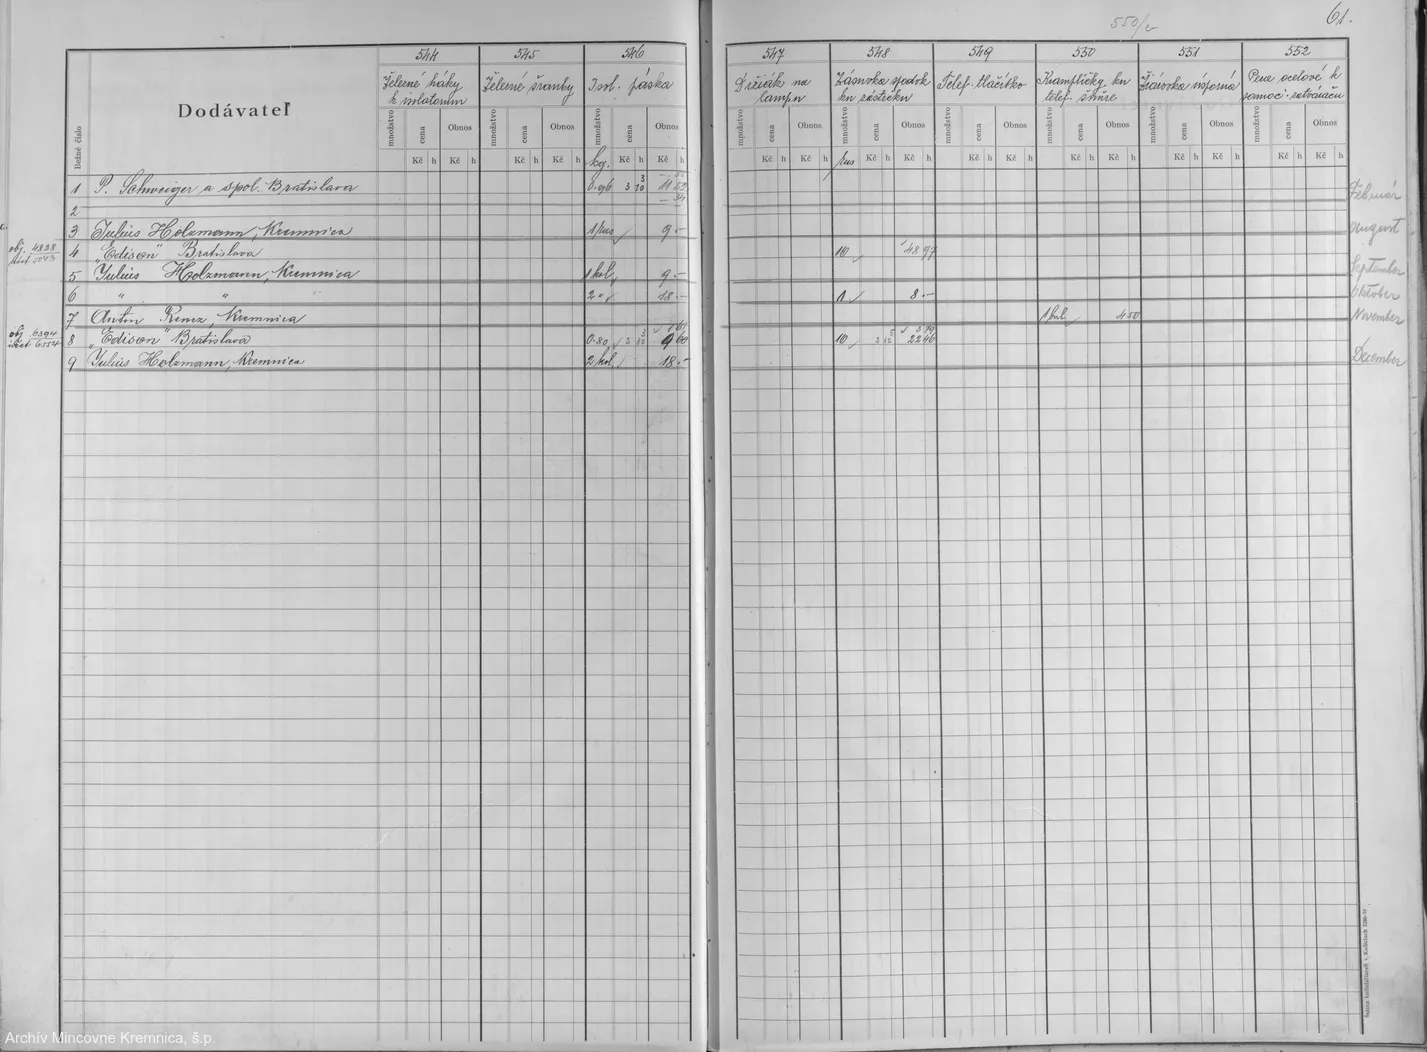 550/a
61.
544 545 546 547 548 549 550 551 552
Dodávateľ
Bežné číslo
Železné háky k isolatorům
Železné šrauby
Isol. páska
Držiak na lampu
Zásuvka spodok ku zástrčku
Telef. tlačítko
Krampličky ku telef. šnúre
Žiarovka úsporná
Pera ocelové k samoč. zatváraču
množstvo cena Obnos množstvo cena Obnos množstvo cena Obnos
množstvo cena Obnos množstvo cena Obnos množstvo cena Obnos množstvo cena Obnos množstvo cena Obnos množstvo cena Obnos
Kč h Kč h Kč h Kč h kg. Kč h Kč h
Kč h Kč h kus Kč h Kč h Kč h Kč h Kč h Kč h Kč h Kč h Kč h Kč h
1 P. Schweiger a spol. Bratislava 0.96 3 10 11 52 Február
2
3 Julius Holzmann, Kremnica 1 kus 9.- August
obj. 4828
účt 5043
4 „Edison“ Bratislava 10 48 97
5 Julius Holzmann, Kremnica 1 kol. 9.- September
6 „ „ 2 „ 18.- 1 8.- Október
7 Anton Kunz, Kremnica 1 bal 4 50 November
obj. 6394
účet 6554
8 „Edison“ Bratislava 0.80 9 60 10 22 46
9 Julius Holzmann, Kremnica 2 kol. 18.- December
Archív Mincovne Kremnica, š.p.